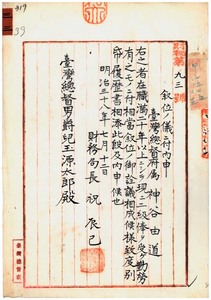 第九三號
敘位ノ儀ニ付内申
臺灣總督府属 神谷由道
右之者在職滿二十年以上ニシテ現ニ二級俸ヲ受ケ勤勞
有之モノニ付相當敘位ノ御詮議相成候様致度別
帋履歴書相添此段及内申候也
明治三十八年七月十二日
財務局長 祝 辰巳
臺灣總督男爵兒玉源太郎殿
臺灣總督府